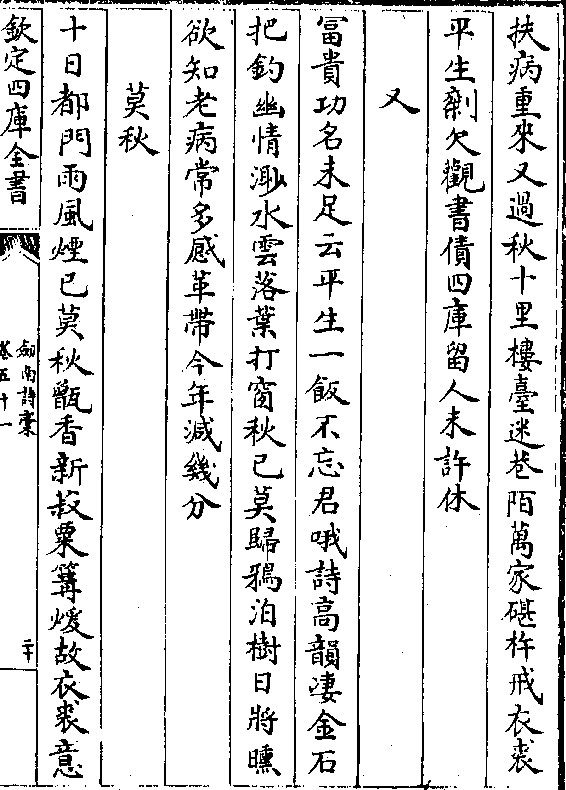 扶病重來又過秋十里樓臺迷巷陌萬家碪杵戒衣裘
平生剩欠觀書債四庫留人未許休
又
冨貴功名未足云平生一飯不忘君哦詩高韻凄金石
把釣幽情溮水雲落葉打窗秋已莫歸鴉泊樹日將曛
欲知老病常多感革帶今年減幾分
莫秋
十日都門雨風煙已莫秋甑香新菽粟篝煖故衣裘意
欽定四庫全書
劍南詩稾
卷五十一
二十